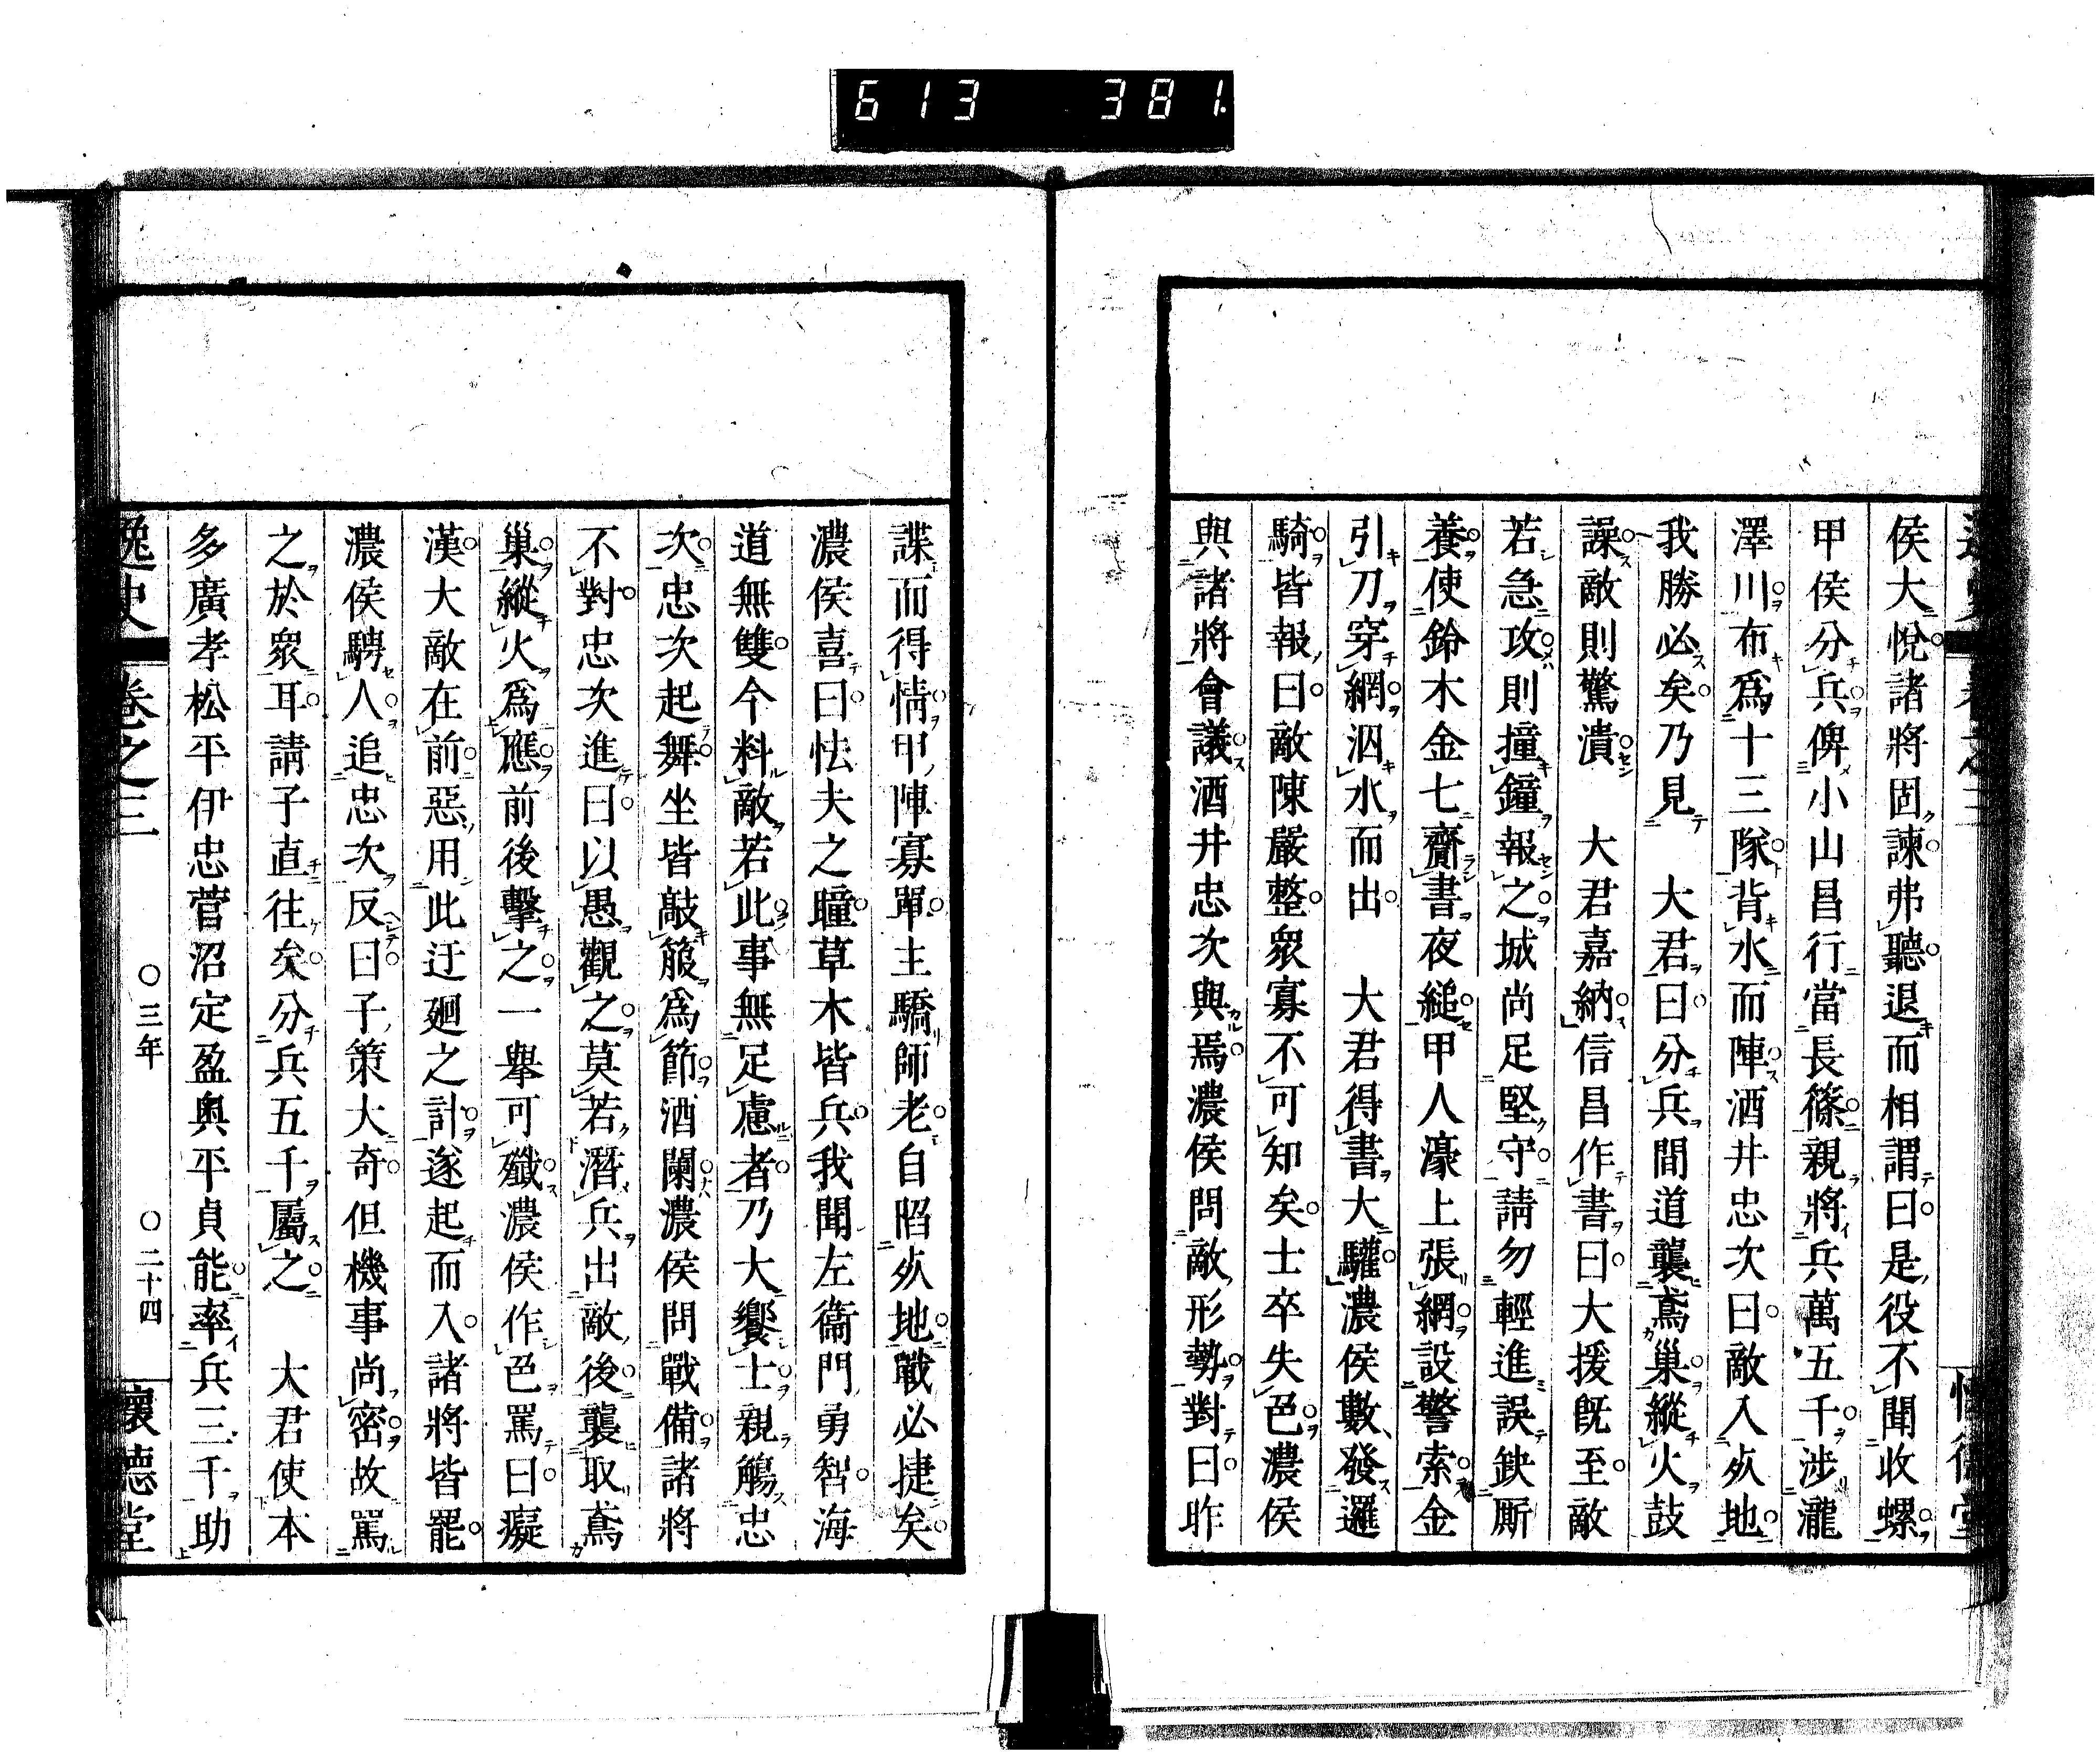 613 381
侯大悅諸將固諫弗聽退而相謂曰是役不聞收螺
甲侯分兵俾小山昌行當長篠親將兵萬五千涉瀧
澤川布爲十三隊背水而陣酒井忠次曰敵入夾地
我勝必矣乃見　大君曰分兵間道襲鳶巢縱火鼓
譟敵則驚潰　大君嘉納信昌作書曰大援旣至敵
若急攻則撞鐘報之城尚足堅守請勿輕進誤缺厮
養使鈴木金七齎書夜縋甲人濠上張網設警索金
引刀穿網泅水而出　大君得書大驩濃侯數發邏
騎皆報曰敵陳嚴整衆寡不可知矣士卒失色濃侯
與諸將會議酒井忠次與焉濃侯問敵形勢對曰昨
諜而得情甲陣寡單主驕師老自陷夾地戰必捷矣
濃侯喜曰怯夫之瞳草木皆兵我聞左衞門勇智海
道無雙今料敵若此事無足慮者乃大饗士親觴忠
次忠次起舞坐皆敲箙爲節酒闌濃侯問戰備諸將
不對忠次進曰以愚觀之莫若潛兵出敵後襲取鳶
巢縱火爲應前後擊之一舉可殲濃侯作色罵曰癡
漢大敵在前惡用此迂廻之計遂起而入諸將皆罷
濃侯騁人追忠次反曰子策大奇但機事尚密故罵
之於衆耳請子直往矣分兵五千屬之　大君使本
多廣孝松平伊忠菅沼定盈奥平貞能率兵三千助
逸史　卷之三　〇三年　〇二十四　懷德堂